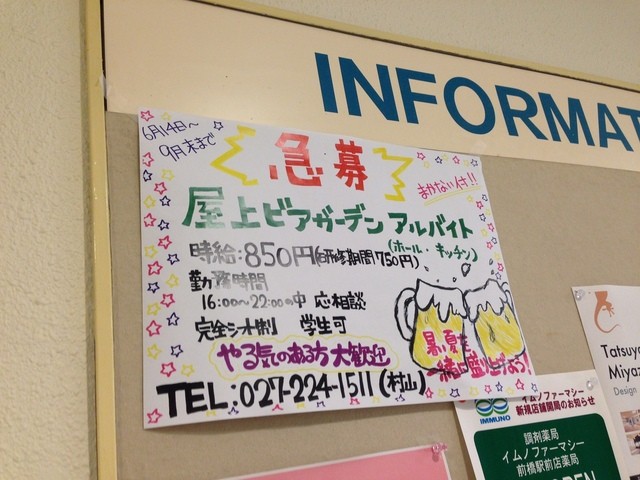 INFORMAT
6月14日～
9月末まで
急募
まかない付!!
屋上ビアガーデン アルバイト
(ホール・キッチン)
時給:850円(研修期間750円)
勤務時間
16:00～22:00の中 応相談
完全シフト制 学生可
やる気のある方 大歓迎
暑い夏を
一緒に盛り上げよう!
TEL:027-224-1511(村山)
Tatsuya
Miyaz
Design
イムノファーマシー
新橋店舗開局のお知らせ
IMMUNO
調剤薬局
イムノファーマシー
前橋駅前店薬局
OPEN